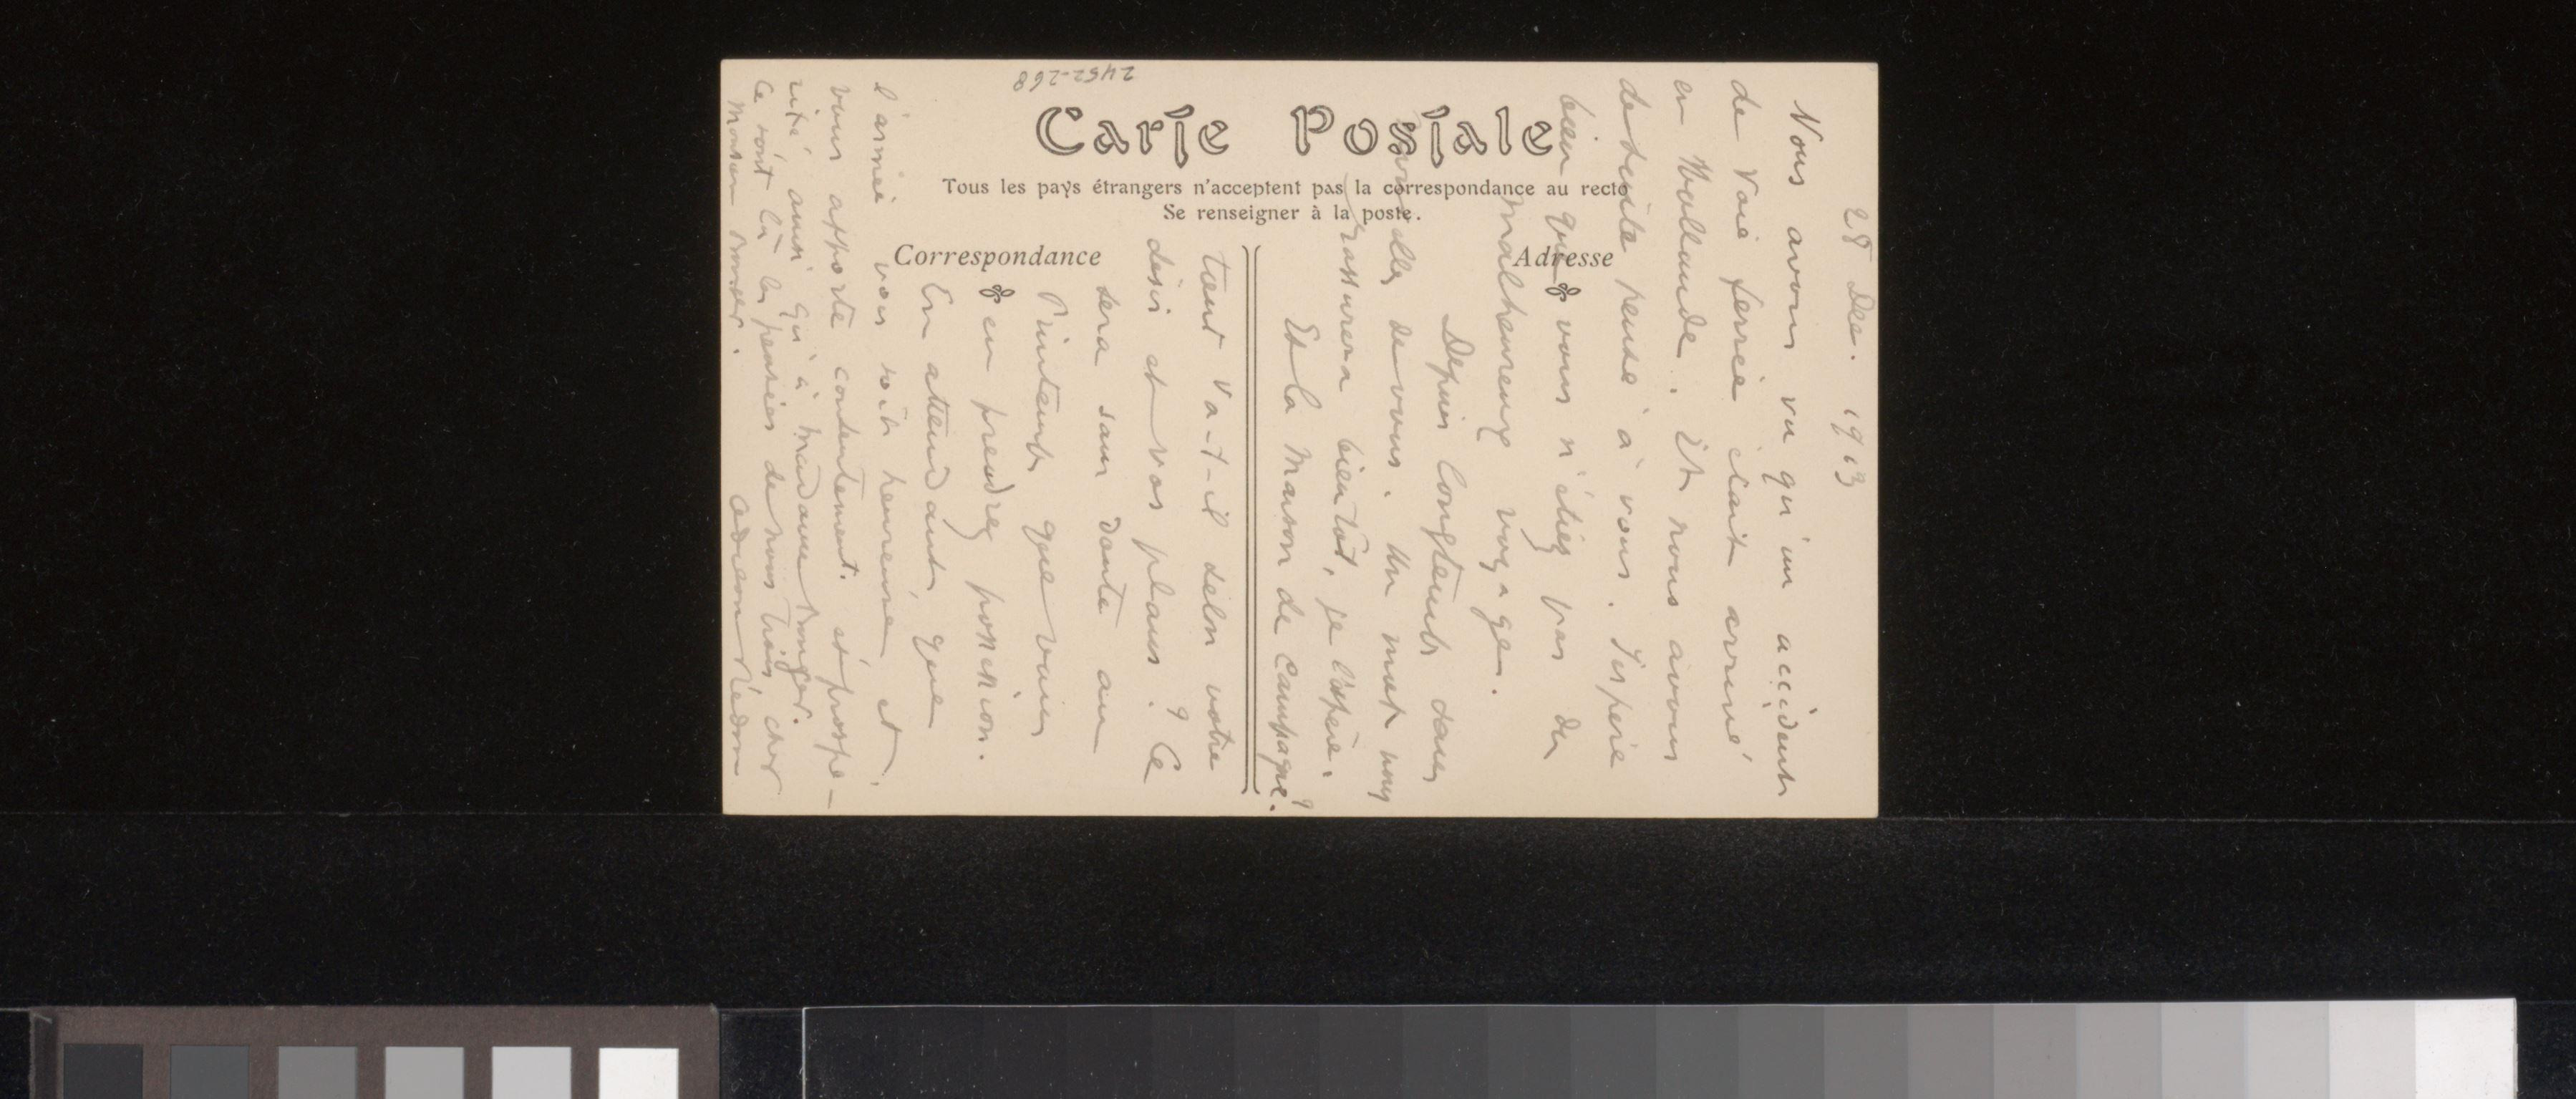 2452-268
Carte Postale
Tous les pays étrangers n'acceptent pas la correspondance au recto
Se renseigner à la poste.
Correspondance
Adresse
28 Dec. 1913
Nous avons vu qu'un accident
de voie ferrée était arrivé
en Hollande. Et nous avons
de suite pensé à vous. J'espère
bien que vous n'étiez pas du
malheureux voyage.
Depuis longtemps sans
nouvelles de vous. Un mot nous
rassurera bientôt, je l'espère.
Et la maison de campagne?
tient va-t-il selon votre
désir et vos plans? Ce
sera sans doute au
Printemps que vous
en prendrez possession.
En attendant, que
l'année vous soit heureuse et
vous apporte contentement et prospé-
rité ainsi qu'à madame Bonger.
Ce sont là les pensées de nous trois cher
Monsieur Bonger.
Odilon Redon